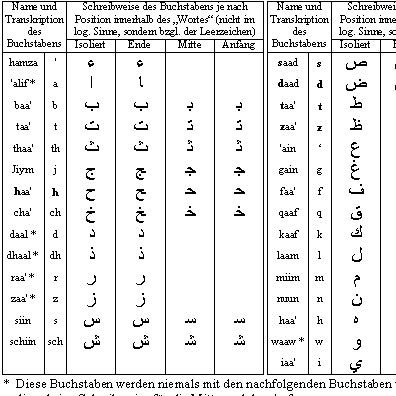 Name und
Transkription
des
Buchstabens
Schreibweise des Buchstabens je nach
Position innerhalb des „Wortes“ (nicht im
log. Sinne, sondern bzgl. der Leerzeichen)
Isoliert Ende Mitte Anfang
hamza ' ء ء
'alif * a ا ـا
baa' b ب ـب ـبـ بـ
taa' t ت ـت ـتـ تـ
thaa' th ث ـث ـثـ ثـ
Jiym j ج ـج ـجـ جـ
haa' h ح ـح ـحـ حـ
cha' ch خ ـخ ـخـ خـ
daal * d د ـد
dhaal * dh ذ ـذ
raa' * r ر ـر
zaa' * z ز ـز
siin s س ـس ـسـ سـ
schiin sch ش ـش ـشـ شـ
Name und
Transkription
des
Buchstabens
Schreibweise des
Position
log. Sinne,
Isoliert
saad s ص
daad d ض
taa' t ط
zaa' z ظ
'ain ‘ ع
gain g غ
faa' f ف
qaaf q ق
kaaf k ك
laam l ل
miim m م
nuun n ن
haa' h ه
waaw * w و
iaa' i ي
* Diese Buchstaben werden niemals mit den nachfolgenden Buchstaben